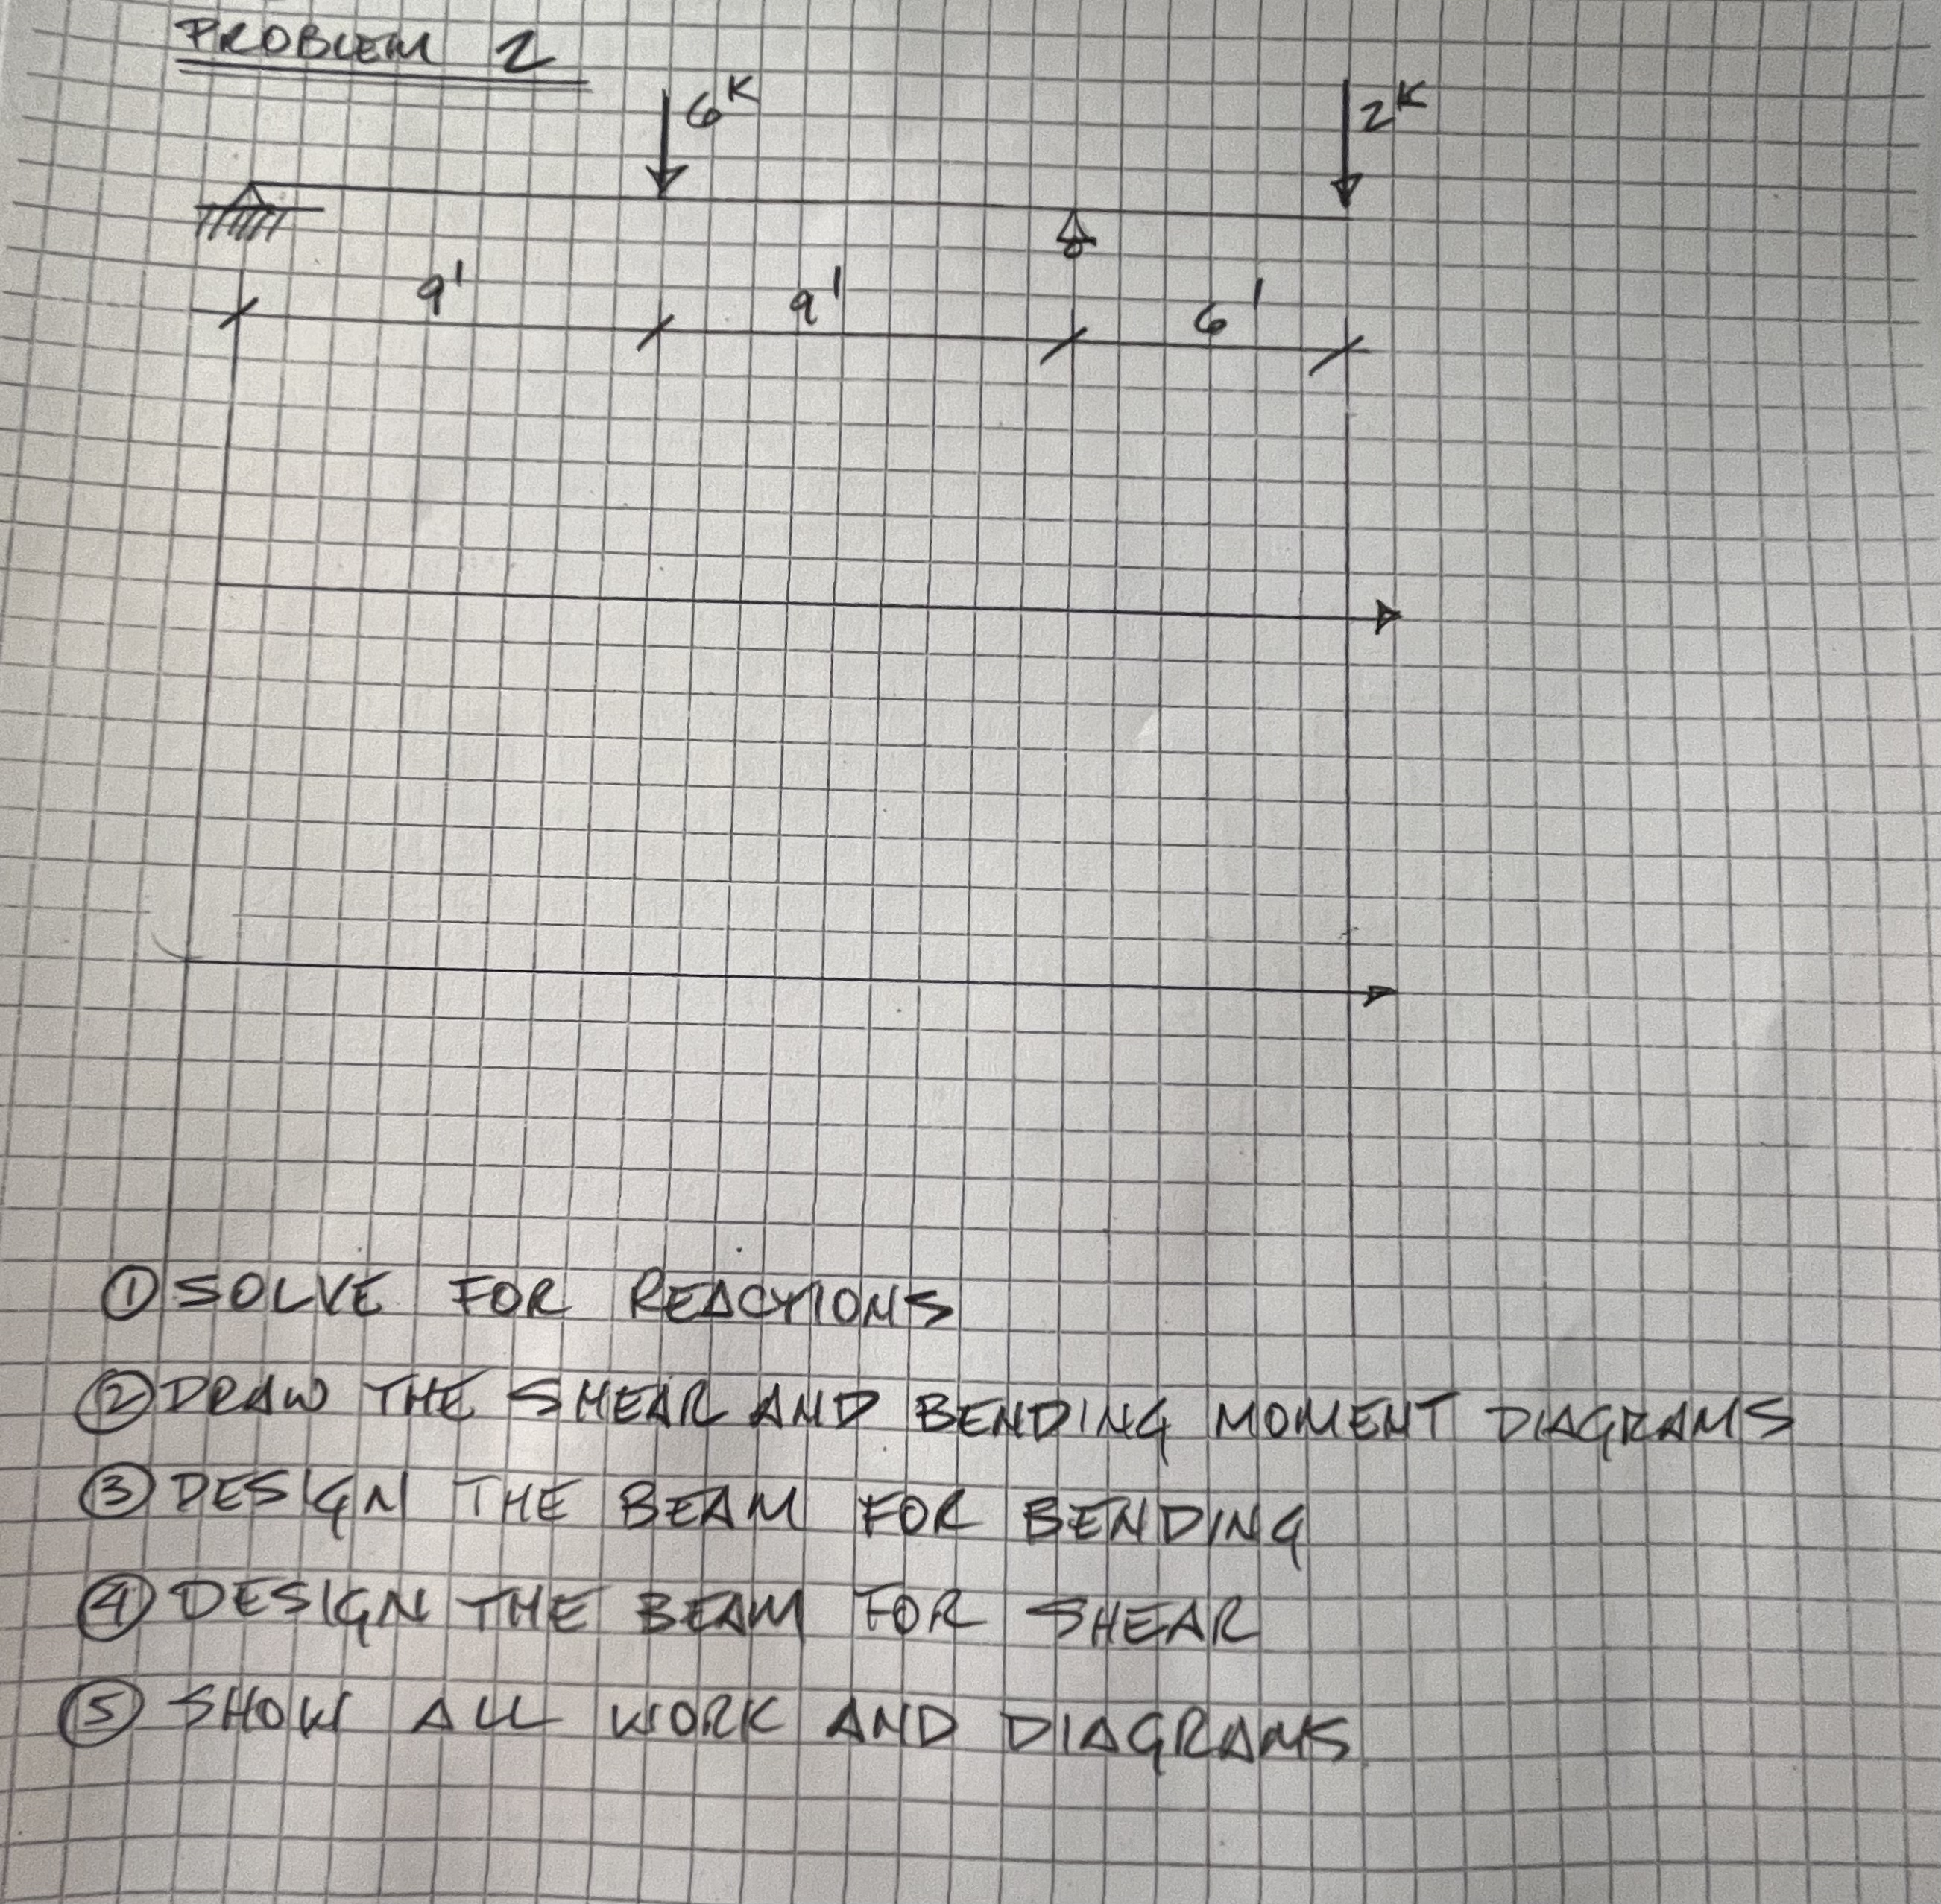 PROBLEM 2
6K 2K
9' 9' 6'
① SOLVE FOR REACTIONS
② DRAW THE SHEAR AND BENDING MOMENT DIAGRAMS
③ DESIGN THE BEAM FOR BENDING
④ DESIGN THE BEAM FOR SHEAR
⑤ SHOW ALL WORK AND DIAGRAMS